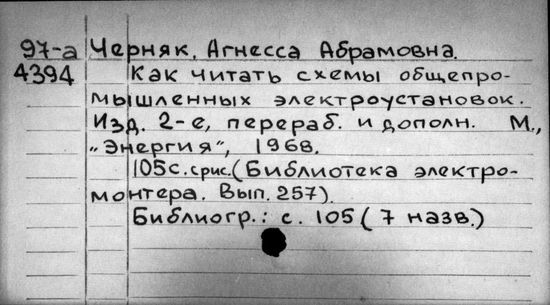 97-а Черняк, Агнесса Абрамовна.
4394 Как читать схемы общепро-
мышленных электроустановок.
Изд. 2-е, перераб. и дополн. М.,
„Энергия", 1968.
105с. срис. (Библиотека электро-
монтера. Вып. 257).
Библиогр.: с. 105 (7 назв.)